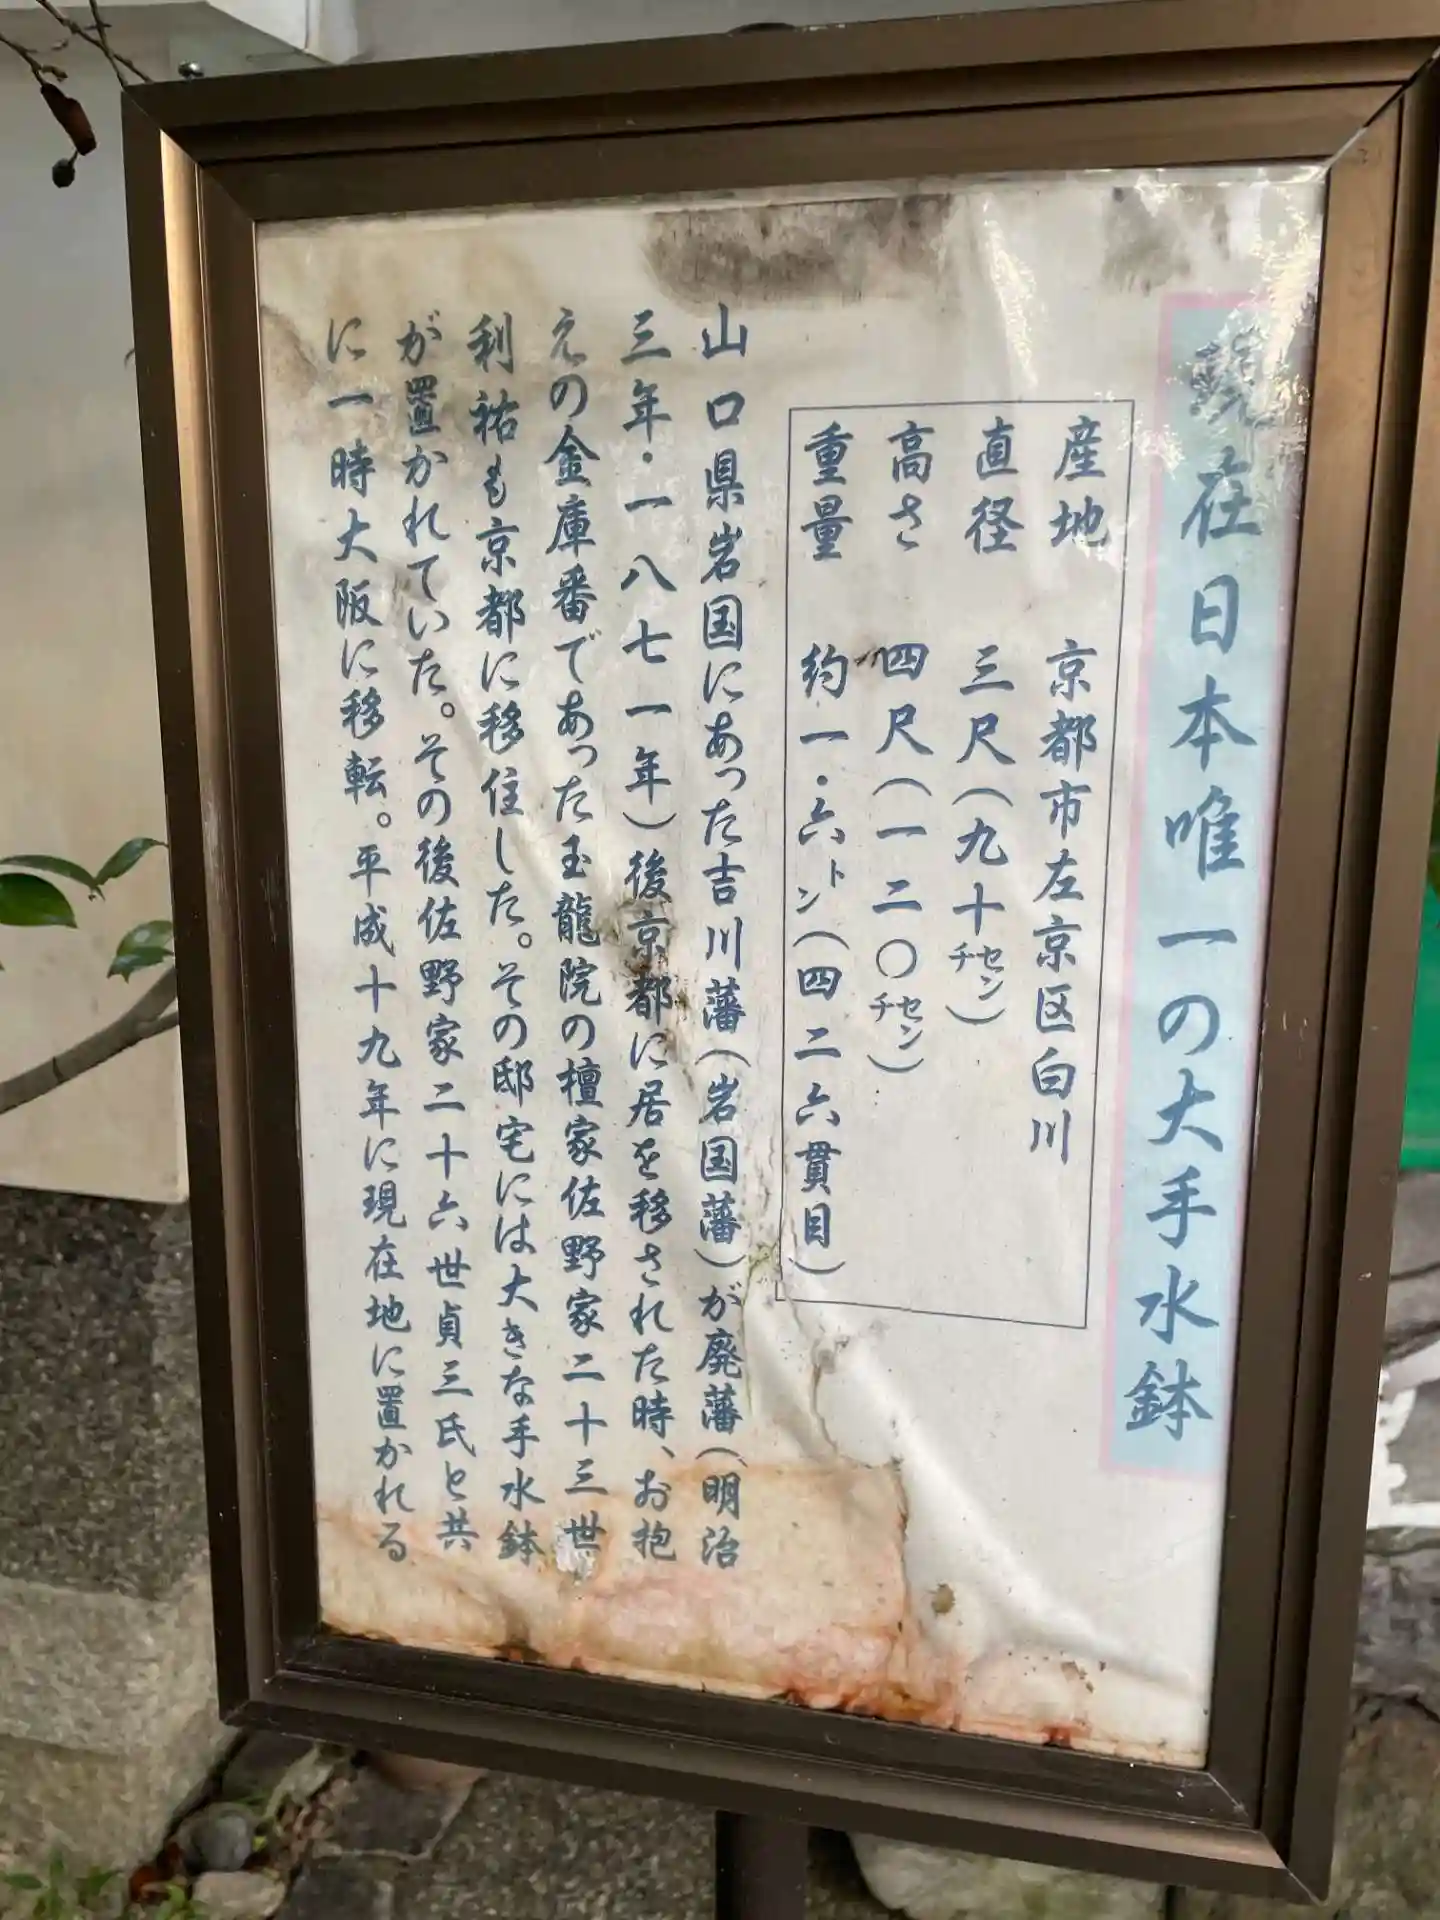 現在日本唯一の大手水鉢
産地 京都市左京区白川
直径 三尺(九十センチ)
高さ 四尺(一二〇センチ)
重量 約一・六トン(四二六貫目)
山口県岩国にあった吉川藩(岩国藩)が廃藩(明治
三年・一八七一年)後京都に居を移された時、お抱
えの金庫番であった玉龍院の檀家佐野家二十三世
利祐も京都に移住した。その邸宅には大きな手水鉢
が置かれていた。その後佐野家二十六世貞三氏と共
に一時大阪に移転。平成十九年に現在地に置かれる